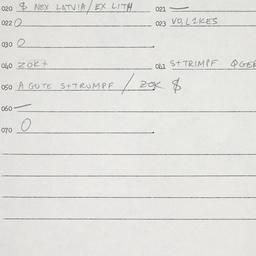 020 $ NEX LATVIA/EX LITH 021 —
022 0 023 VO, LIKES
030 0
040 ZOK+ 041 S+TRIMPF
050 A GUTE S+TRUMPF / ZOK $
060 —
070 0